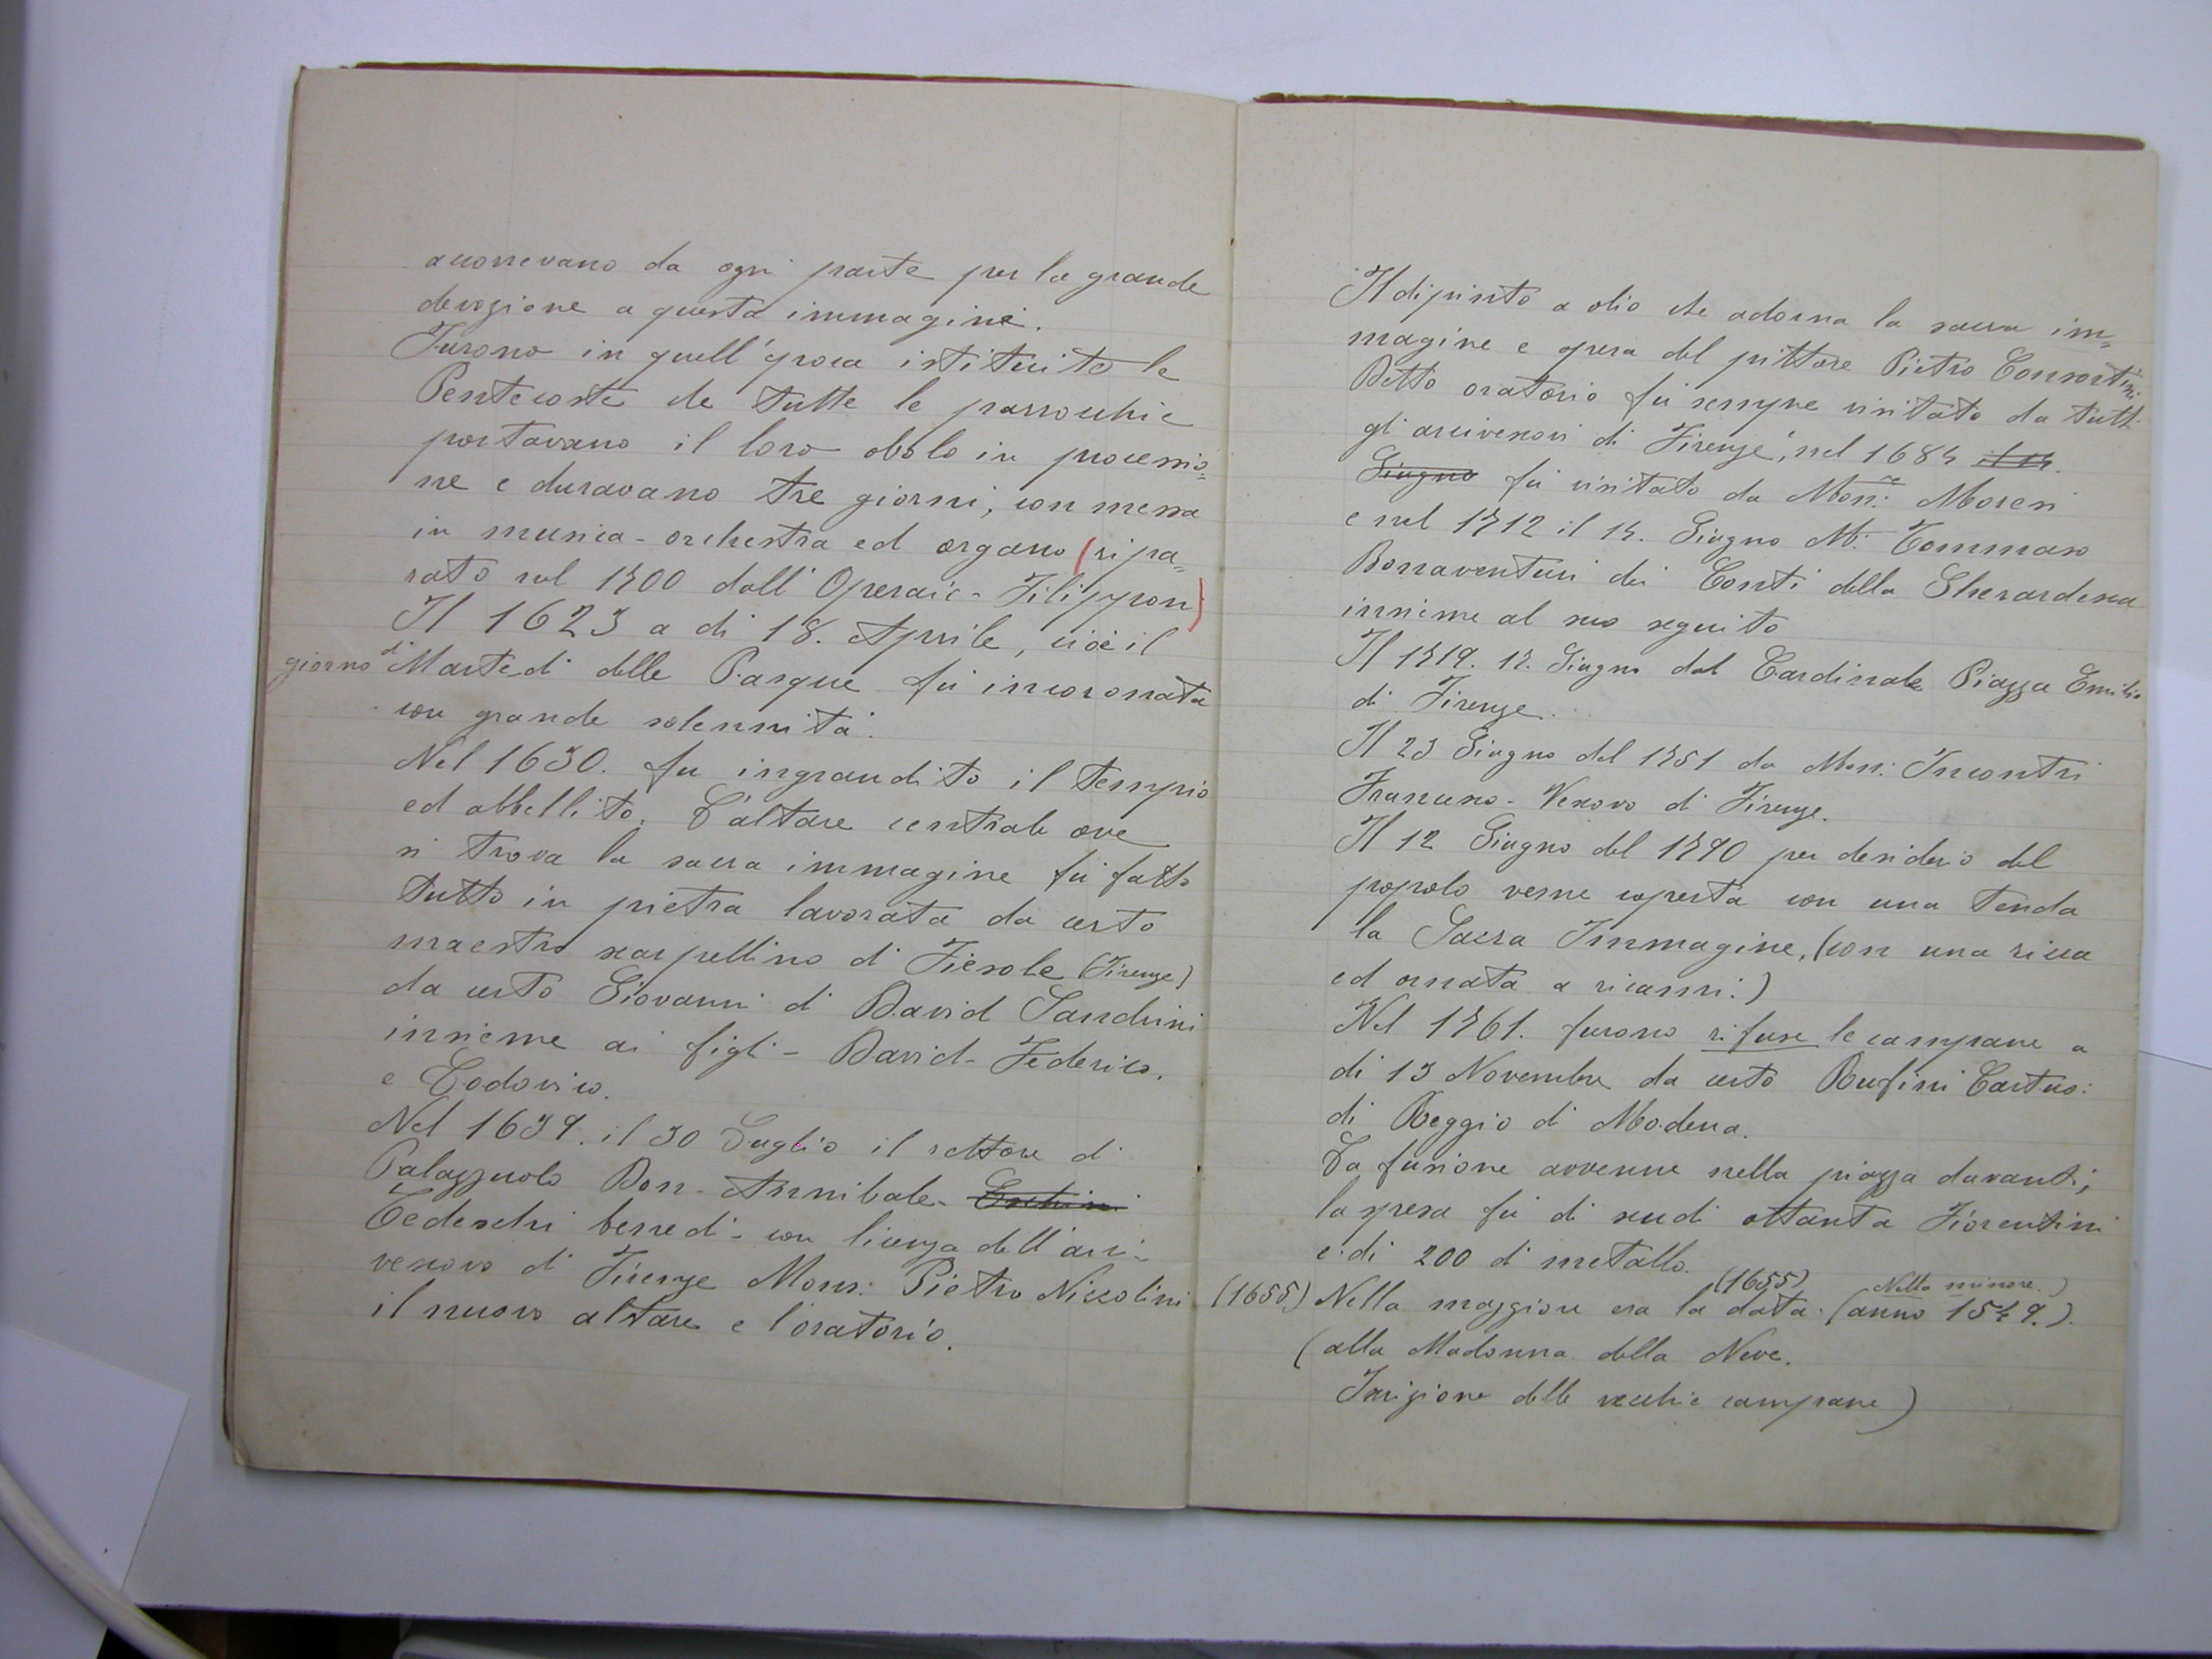 accorrevano da ogni parte per la grande
devozione a questa immagine.
Furono in quell'epoca istituite le
Pentecoste che tutte le parrocchie
portavano il loro obolo in processio=
ne e duravano tre giorni, con messa
in musica - orchestra ed organo (ripa=
rato nel 1700 dall'Operaio - Filipponi)
Il 1623 a di 18. Aprile, cioè il
giorno di Martedì delle Pasque fù incoronata
con grande solennità.
Nel 1630. fu ingrandito il tempio
ed abbellito. L'altare centrale ove
si trova la sacra immagine fù fatto
tutto in pietra lavorata da certo
maestro scarpellino di Fiesole (Firenze)
da certo Giovanni di David Sandrini
insieme ai figli - David - Federico.
e Lodovico.
Nel 1639. il 30 Luglio il rettore di
Palazzuolo Don - Annibale -
Tedeschi benedì - con licenza dell'arci-
vescovo di Firenze Mons: Pietro Niccolini
il nuovo altare e l'oratorio.
Il dipinto a olio che adorna la sacra im=
magine e opera del pittore Pietro Consortini
Detto oratorio fù sempre visitato da tutti
gli arcivescovi di Firenze, nel 1684
Giugno fù visitato da Mons: Moresi
e nel 1712 il 14. Giugno M: Tommaso
Bonaventuri dei Conti della Gherardesca
insieme al suo seguito
Il 1719. 12. Giugno dal Cardinale Piazza Emilio
di Firenze.
Il 23 Giugno del 1751 da Mons: Incontri
Francesco - Vescovo di Firenze.
Il 12 Giugno del 1790 per desiderio del
popolo venne coperta con una tenda
la Sacra Immagine, (con una ricca
ed ornata a ricami.)
Nel 1761. furono rifuse le campane a
di 13 Novembre da certo Rufini
di Reggio di Modena.
La fusione avvenne nella piazza davanti;
la spesa fù di scudi ottanta Fiorentini
e di 200 di metallo.
(1655) Nella minore.)
(1655) Nella maggiore era la data. (anno 1549.).
(alla Madonna della Neve.
Iscrizione delle vecchie campane)